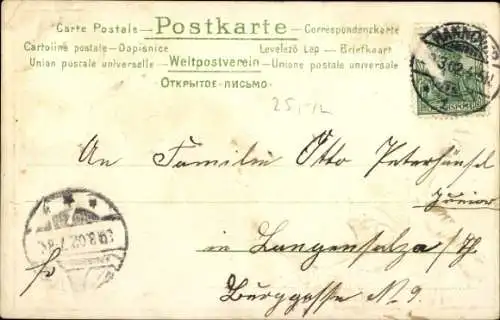 Carte Postale — Postkarte — Correspondenzkarte
Cartolina postale — Dopisnice Levelező Lap — Briefkaart
Union postale universelle — Weltpostverein — Unione postale universale
ОТКРЫТОЕ-ПИСЬМО
HANNOVER
25,-/2
An Familie Otto Peterhänsel
junior
in Langensalza /Th.
Burggasse No 9.